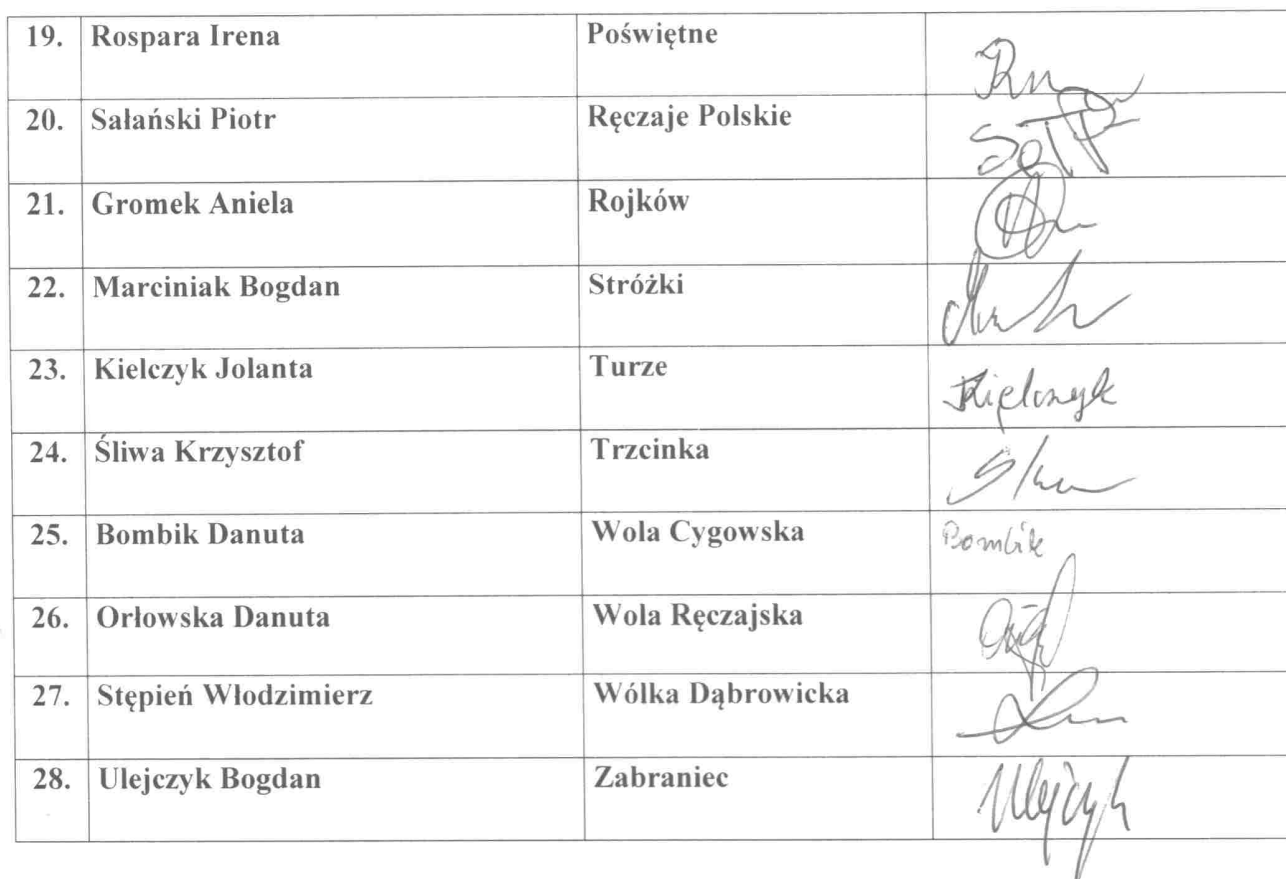 19. Rospara Irena Poświętne
20. Sałański Piotr Ręczaje Polskie
21. Gromek Aniela Rojków
22. Marciniak Bogdan Stróżki
23. Kielczyk Jolanta Turze Kielczyk
24. Śliwa Krzysztof Trzcinka
25. Bombik Danuta Wola Cygowska Bombik
26. Orłowska Danuta Wola Ręczajska
27. Stępień Włodzimierz Wólka Dąbrowicka
28. Ulejczyk Bogdan Zabraniec Ulejczyk